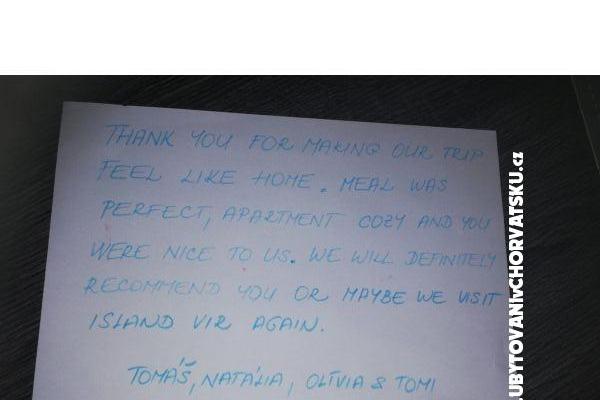 THANK YOU FOR MAKING OUR TRIP
FEEL LIKE HOME. MEAL WAS
PERFECT, APARTMENT COZY AND YOU
WERE NICE TO US. WE WILL DEFINITELY
RECOMMEND YOU OR MAYBE WE VISIT
ISLAND VIR AGAIN.
TOMÁŠ, NATÁLIA, OLÍVIA & TOMI
UBYTOVANIvCHORVATSKU.cz